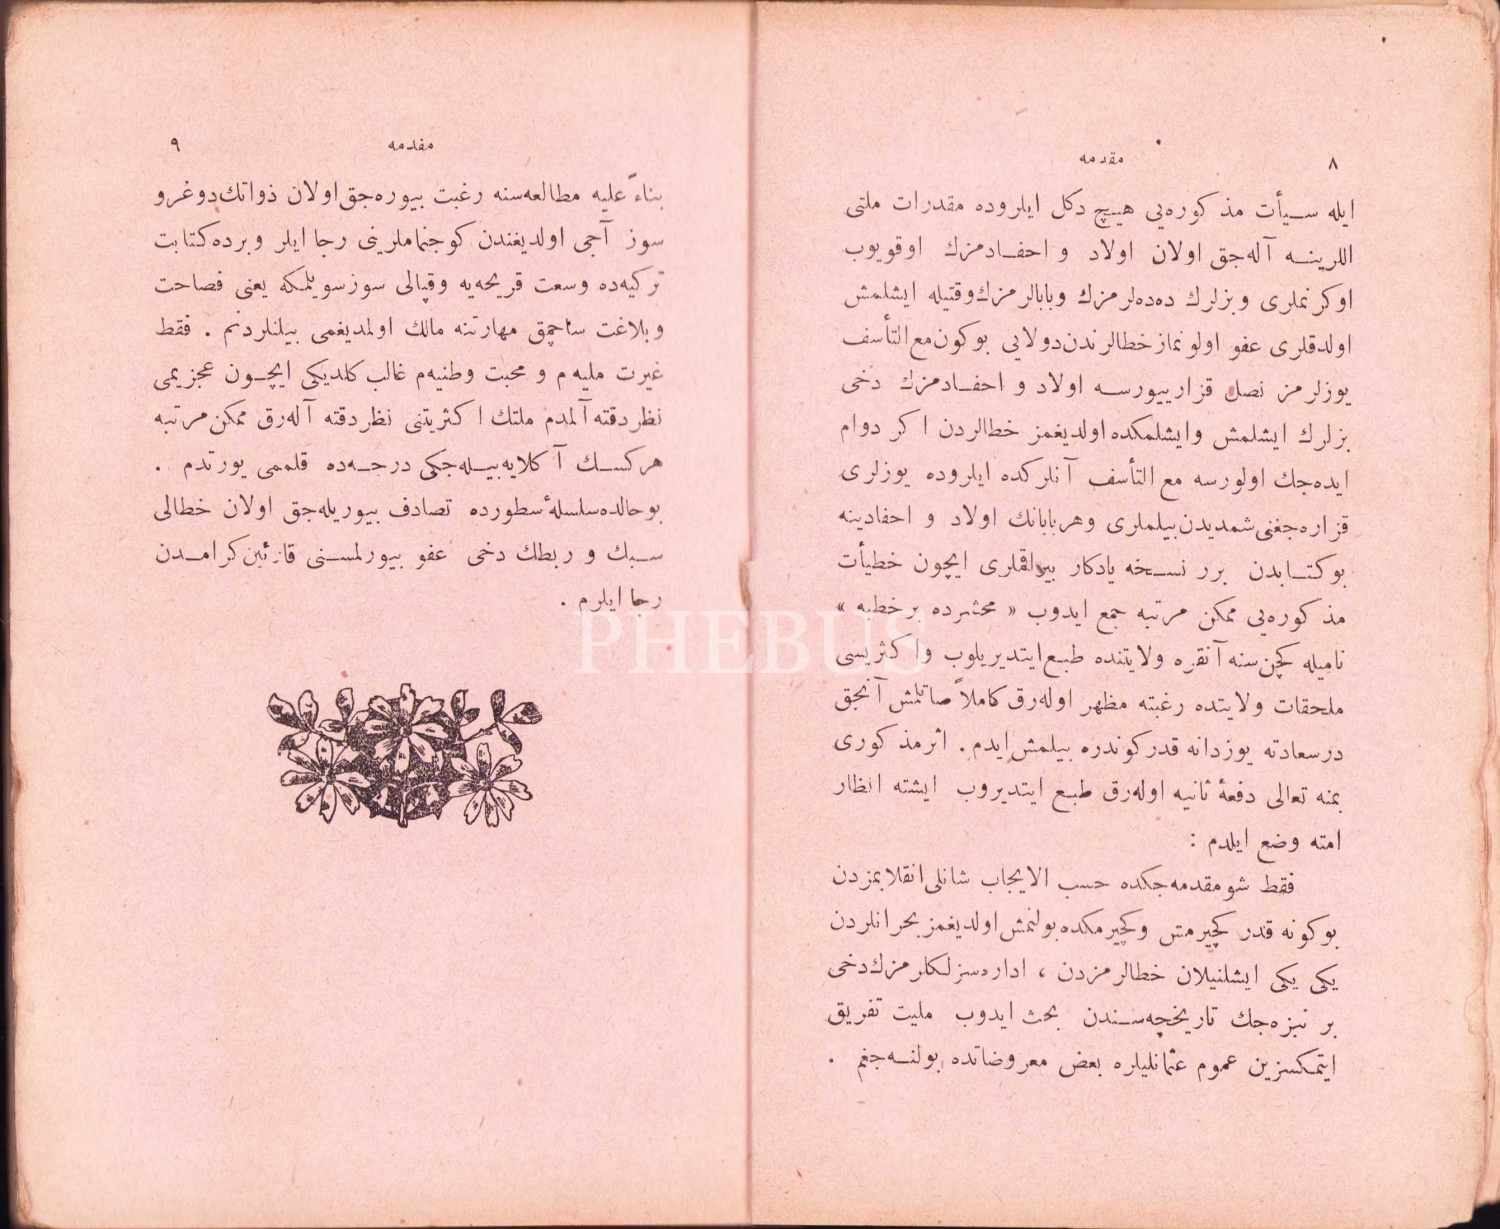 ٨ مقدمه
ايله سـيأت مذكوره‌يى هيـچ دكل ايلروده مقدرات ملتى
اللرينـه آله‌جق اولان اولاد و احفـادمزك اوقويوب
اوكرنملرى وبزلرك دده‌لرمزك وبابالرمزك‌وقتيله ايشلمش
اولدقلرى عفو اولونماز خطالرندن دولايى بوكون مع التأسف
يوزلرمز نصل قزارييورسـه اولاد و احفـادمزك دخى
بزلرك ايشلمش وايشلمكده اولديغمز خطالردن اكر دوام
ايده‌جك اولورسه مع التأسف آنلركده ايلروده يوزلرى
قزاره‌جغنى شمديدن بيلملرى وهربابانك اولاد و احفادينه
بوكتـابدن برر نسـخه يادكار بيراقملرى ايچون خطيأت
مذكوره‌يى ممكن مرتبه جمع ايدوب « محشرده برخطبه »
ناميله كچن سنه آنقره ولايتنده طبـع ايتديريلوب واكثريسى
ملحقات ولايتده رغبته مظهر اوله‌رق كاملاً صاتلمش آنجق
درسعادته يوزدانه قدر كوندره بيلمش ايدم . اثر مذكورى
بمنه تعالى دفعهٔ ثانيه اوله‌رق طبـع ايتديروب ايشته انظار
امته وضع ايلدم :
فقط شو مقدمه‌جكده حسب الايجاب شانلى انقلابمزدن
بوكونه قدر كچيرمش وكچيرمكده بولنمش اولديغمز بحرانلردن
يكى يكى ايشلنيلان خطالرمزدن ، اداره‌سزلكلرمزك دخى
بر نبزه‌جك تاريخچه‌سـندن بحث ايدوب مليت تفريق
ايتمكسزين عموم عثمانليلره بعض معروضاتده بولنـه‌جغم .
مقدمه ٩
بناءً عليه مطالعه‌سنه رغبت بيوره‌جق اولان ذواتك دوغرو
سوز آجى اولديغندن كوجنماملرينى رجا ايلر وبرده كتابت
تركيه‌ده وسعت قريحه‌يه وقپالى سوز سويلمكه يعنى فصاحت
وبلاغت ساچمق مهارتنه مالك اولمديغمى بيلنلردنم . فقط
غيرت مليه‌م و محبت وطنيه‌م غالب كلديكى ايچـون عجزيمى
نظردقته آلمدم ملتك اكثريتنى نظردقته آله‌رق ممكن مرتبه
هركسـك آكلايه‌بيـله‌جكى درجـه‌ده قلممى يورتدم .
بوحالده سلسلهٔ سطورده تصادف بيوريله‌جق اولان خطالى
سـبك و ربطك دخى عفو بيورلمسـنى قارئين كرامـدن
رجا ايلرم .
PHEBUS